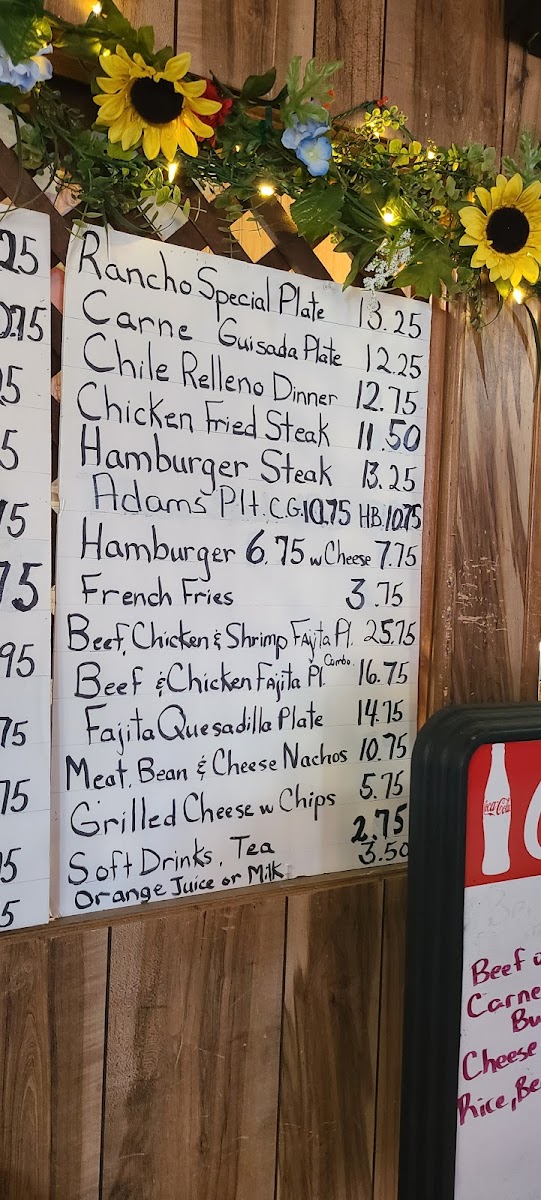 25
0.75
5
5
75
75
95
75
75
5
5
Rancho Special Plate 13.25
Carne Guisada Plate 12.25
Chile Relleno Dinner 12.75
Chicken Fried Steak 11.50
Hamburger Steak 13.25
Adams Plt. C.G. 10.75 HB. 10.75
Hamburger 6.75 w Cheese 7.75
French Fries 3.75
Beef, Chicken & Shrimp Fajita Pl. 25.75
Beef & Chicken Fajita Pl. Combo 16.75
Fajita Quesadilla Plate 14.75
Meat, Bean & Cheese Nachos 10.75
Grilled Cheese w Chips 5.75
Soft Drinks, Tea 2.75
Orange Juice or Milk 3.50
Coca-Cola
Beef
Carne
Bu
Cheese
Rice, Be